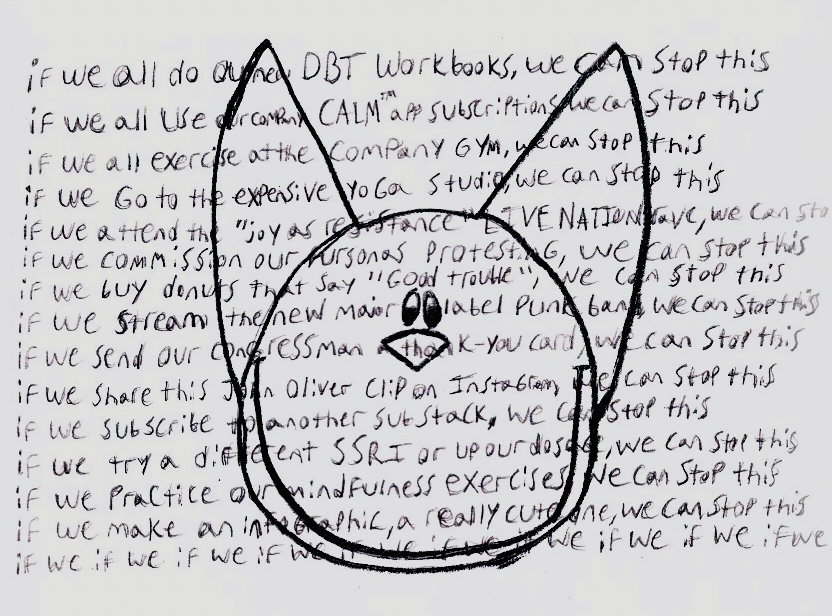 if we all do our new DBT Workbooks, we can Stop this
if we all Use our company CALM™ app subscriptions we can Stop this
if we all exercise at the Company GYM, we can Stop this
if we Go to the expensive YoGa Studio, we can stop this
if we attend the "joy as resistance" LIVE NATION rave, we can sto
if we commission our fursonas Protesting, we can Stop this
if we buy donuts that say "Good trouble", we can Stop this
if we Stream the new major label Punk band we can Stop this
if we send our congressman a thank-you card, we can Stop this
if we share this John Oliver Clip on Instagram, we can Stop this
if we subscribe to another substack, we can Stop this
if we try a different SSRI or up our dosage, we can Stop this
if we Practice our mindfulness exercises we can Stop this
if we make an infographic, a really cute one, we can Stop this
if we if we if we if we if we if we if we if we if we if we